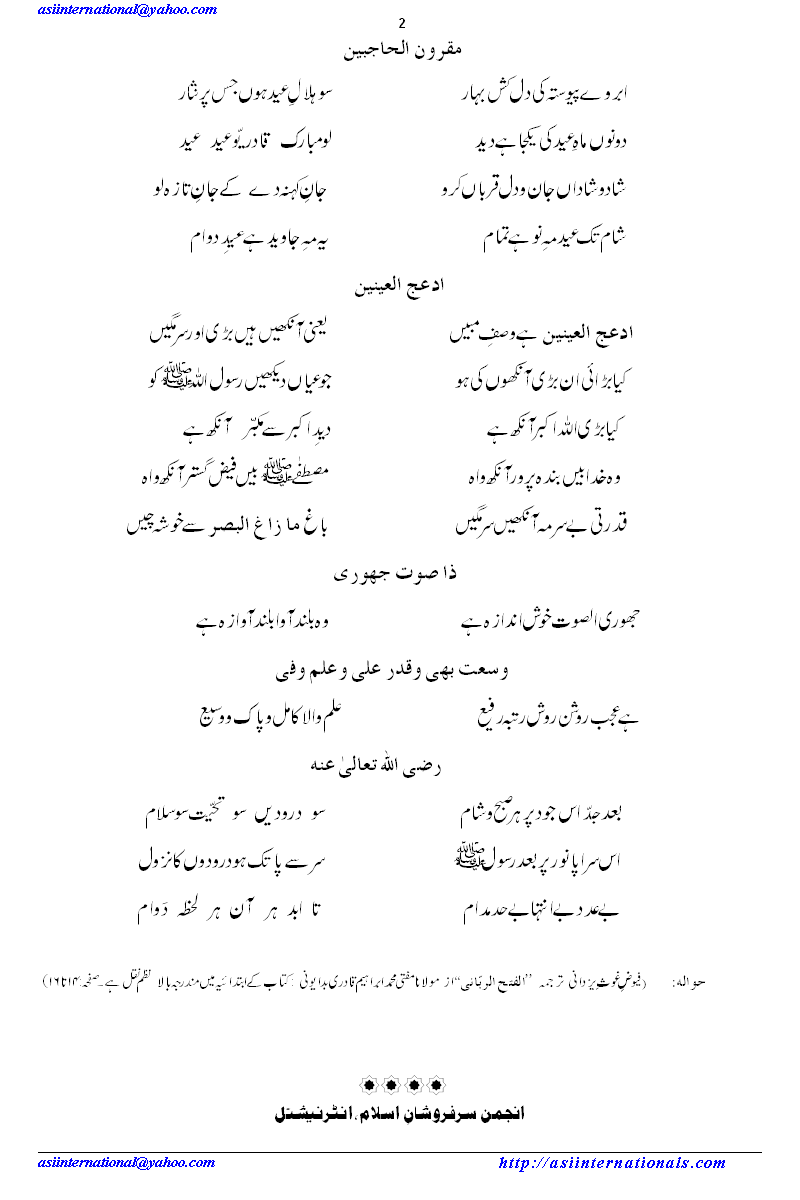 asiinternational@yahoo.com
2
مقرون الحاجبین
ابروے پیوستہ کی دل کش بہار سو ہلالِ عید ہوں جس پر نثار
دونوں ماہِ عید کی یکجا ہے دید لو مبارک قادریّو عید عید
شاد و شاداں جان و دل قرباں کرو جانِ کہنہ دے کے جانِ تازہ لو
شام تک عید مہِ نو ہے تمام یہ مہِ جاوید ہے عیدِ دوام
ادعج العینین
ادعج العینین ہے وصفِ مبیں یعنی آنکھیں ہیں بڑی اور سرمگیں
کیا بڑائی ان بڑی آنکھوں کی ہو جو عیاں دیکھیں رسول اللہ ﷺ کو
کیا بڑی اللہ اکبر آنکھ ہے دیدِ اکبر سے مکبّر آنکھ ہے
وہ خدا بیں بندہ پرور آنکھ واہ مصطفےٰ ﷺ بیں فیض گستر آنکھ واہ
قدرتی بے سرمہ آنکھیں سرمگیں باغِ ما زاغ البصر سے خوشہ چیں
ذا صوت جھوری
جھوری الصوت خوش اندازہ ہے وہ بلند آوا بلند آوازہ ہے
وسعت بھی وقدر علی و علم وفی
ہے عجب روشن روش رتبہ رفیع علم والا کامل و پاک و وسیع
رضی اللہ تعالیٰ عنہ
بعد جدّ اس جود پر ہر صبح و شام سو درودیں سو تحیّت سو سلام
اس سراپا نور پر بعد رسول ﷺ سر سے پا تک ہو درودوں کا نزول
بے عدد بے انتہا بے حد مدام تا ابد ہر آن ہر لحظہ دَوام
حوالہ: (فیوضِ غوثِ یزدانی ترجمہ ’’الفتح الربّانی‘‘ از مولانا مفتی محمد ابراہیم قادری بدایونی کتاب کے ابتدائیہ میں مندرجہ بالا نظم نقل ہے۔ صفحہ ۱۴ تا ۱۶)
انجمن سرفروشانِ اسلام، انٹرنیشنل
asiinternational@yahoo.com http://asiinternationals.com